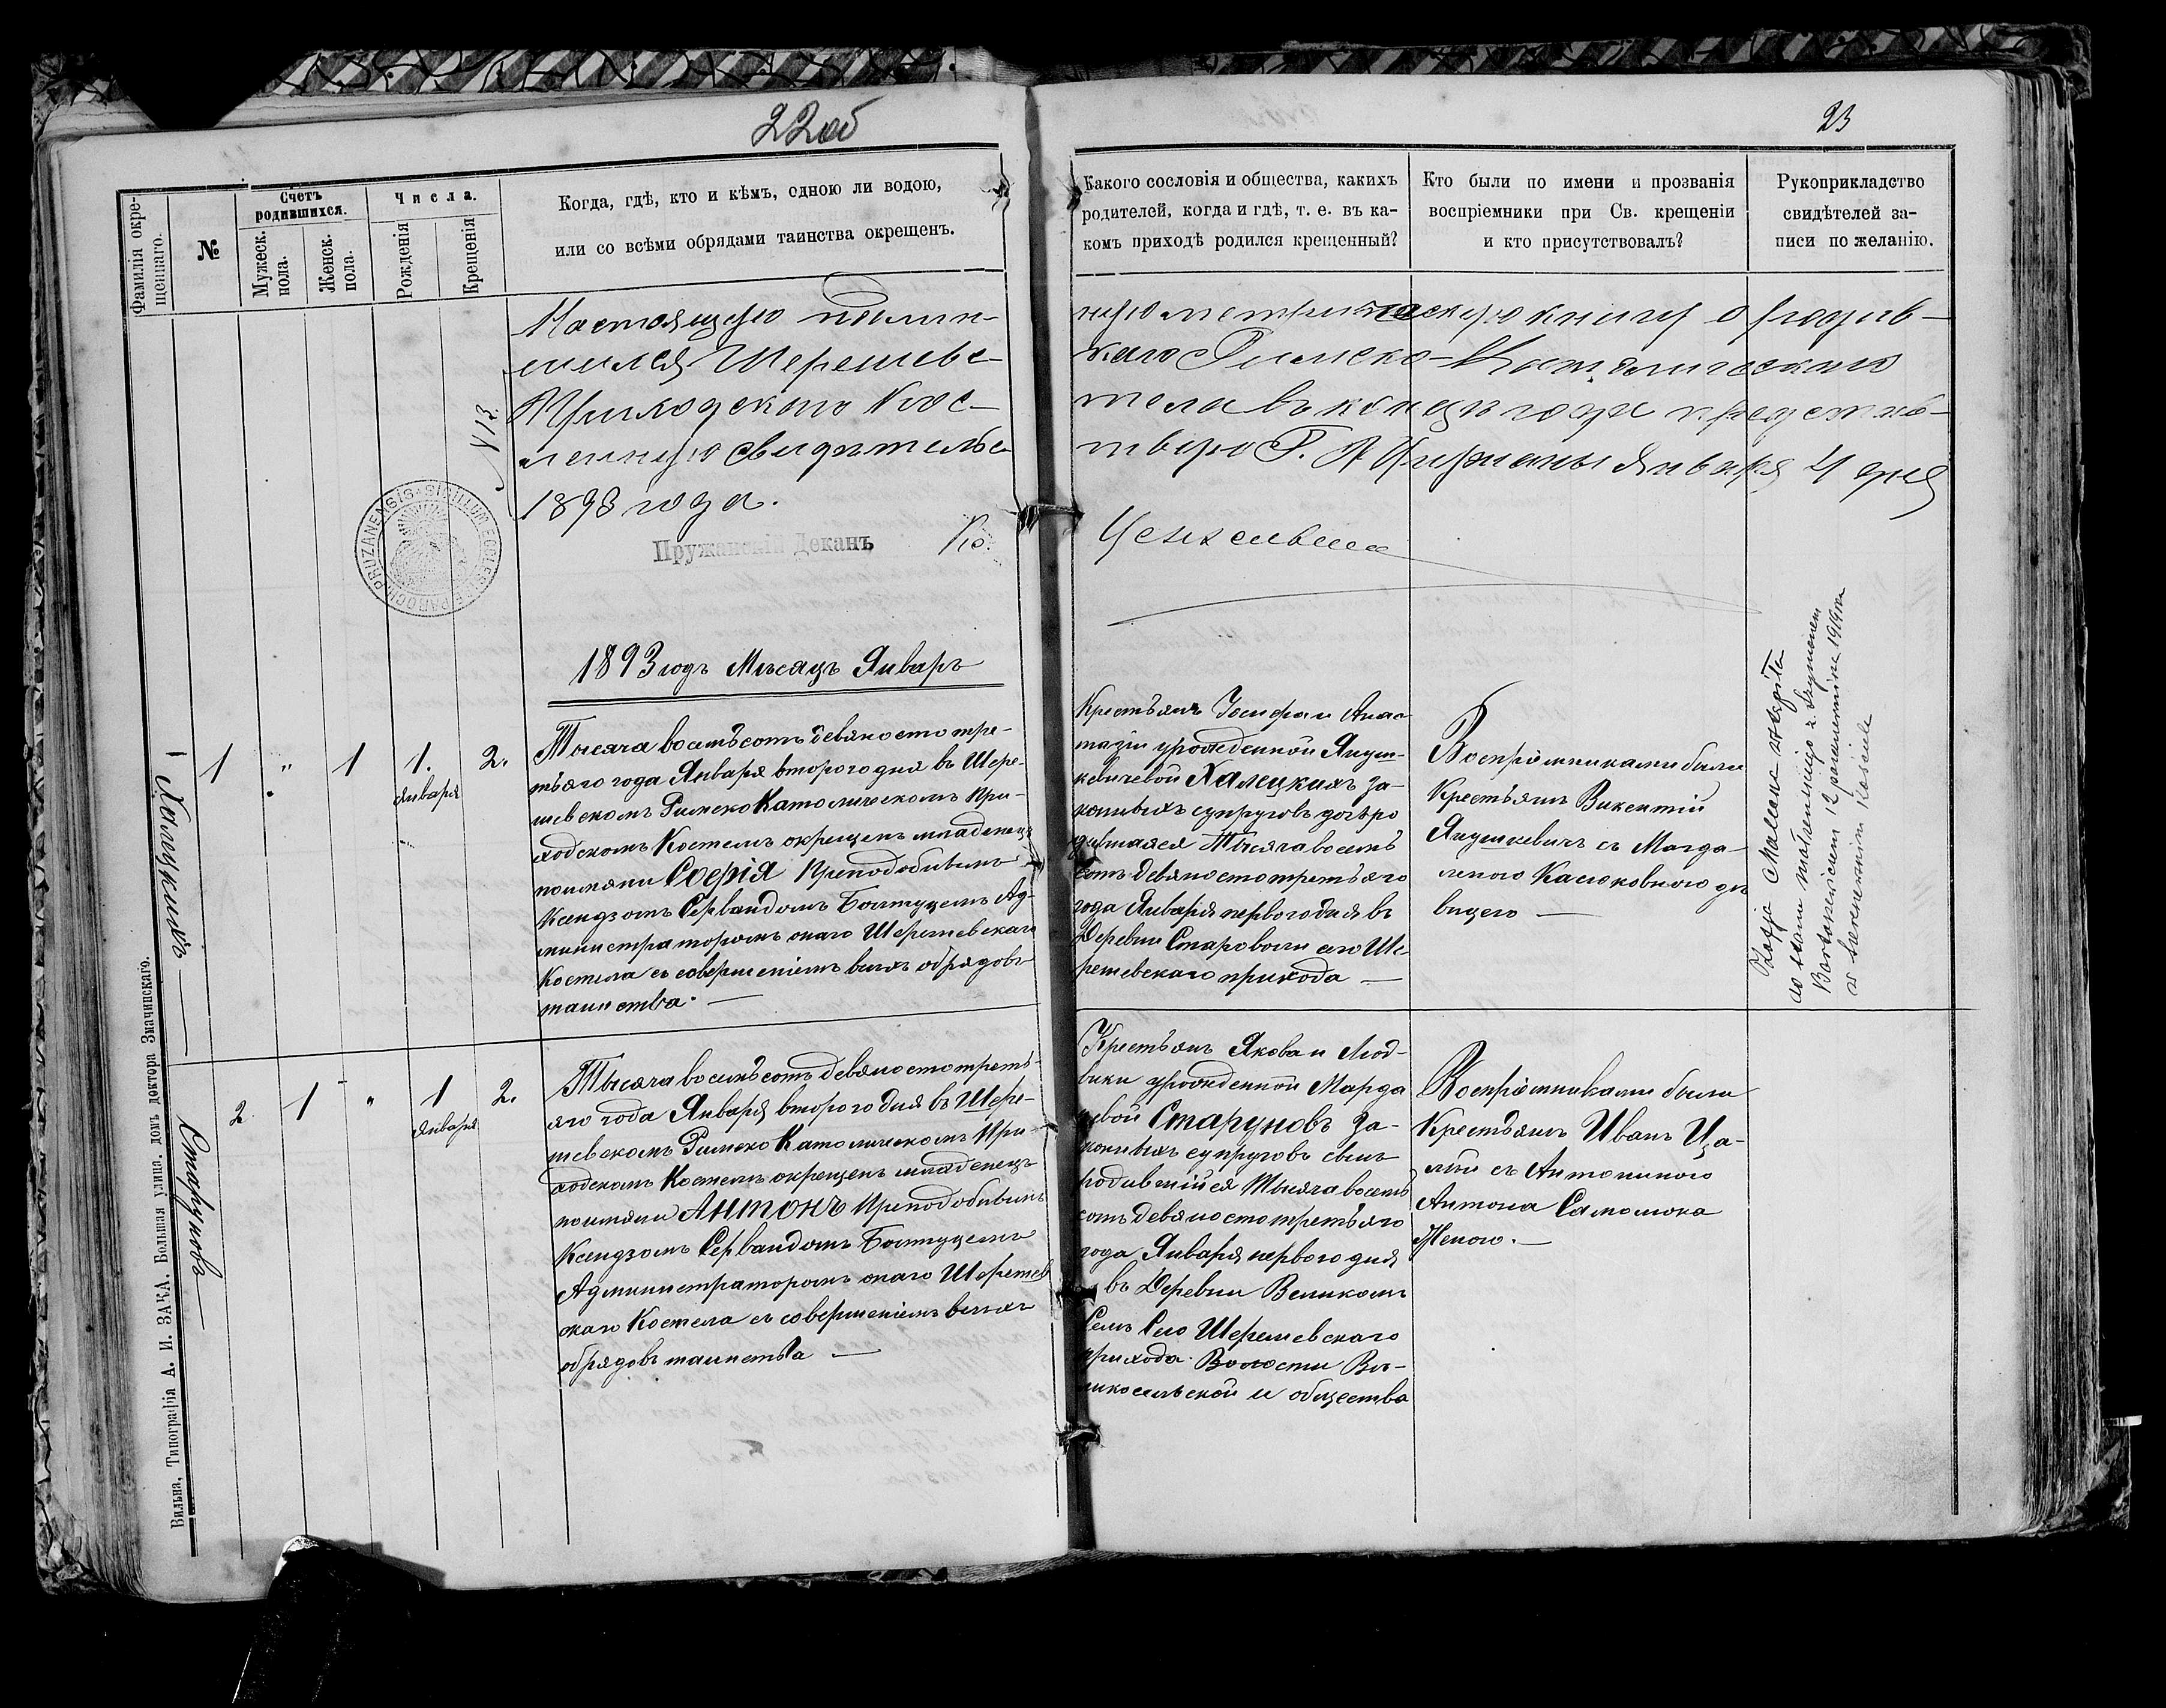 22об
23
Фамилія окре-
щеннаго.
№
Счетъ
родившихся.
Мужеск.
пола.
Женск.
пола.
Числа.
Рожденія
Крещенія
Когда, гдѣ, кто и кѣмъ, одною ли водою,
или со всѣми обрядами таинства окрещенъ.
Какого сословія и общества, какихъ
родителей, когда и гдѣ, т. е. въ ка-
комъ приходѣ родился крещенный?
Кто были по имени и прозванія
воспріемники при Св. крещеніи
и кто присутствовалъ?
Рукоприкладство
свидѣтелей за-
писи по желанію.
Настоящую подлин-
ную метрическую книгу о родив-
шихся Шерешевс-
каго Римско-Католическаго
Приходскаго Кос-
тела въ концѣ года представ-
ленную свидѣтельс-
твую Г. Пружаны Января 4 дня
1893 года.
№ 12
SIGILLUM ECCLESIAE PAROCH. PRUZANENSIS
Пружанскій Деканъ
1893 годъ Мѣсяцъ Январъ
Халецкихъ
1
"
1
1.
Января
2.
Тысяча восемьсотъ девяносто тре-
тьяго года Января второго дня въ Шере-
шевскомъ Римско Католическомъ При-
ходскомъ Костелѣ окрещенъ младенецъ
по имяни Софія Преподобнымъ
Ксендзомъ Сервандомъ Болтуцемъ Ад-
министраторомъ онаго Шерешевскаго
Костела съ совершеніемъ всѣхъ обрядовъ
таинства. —
Крестьянъ Іосифа и Анас-
тазіи урожденной Януш-
кевичевой Халецкихъ за-
конныхъ супруговъ дочь ро
дившаяся Тысяча восемь
сотъ девяносто третьяго
года Января первого дня въ
Деревни Староволи сего Ше-
решевскаго прихода —
Воспріемниками были
Крестьянъ Викентій
Янушкевичъ съ Магда-
леною Касюковною дѣ
вицею —
Zofja Malecka wstąpiła
do stanu małżeńskiego z Szymonem
Bartosiewiczem 12 1919 r.
w kościele
Старуновъ
2
1
"
1
Января
2.
Тысяча восемьсотъ девяносто треть-
яго года Января второго дня въ Шере-
шевскомъ Римско Католическомъ При-
ходскомъ Костелѣ окрещенъ младенецъ
по имяни Антонъ Преподобнымъ
Ксендзомъ Сервандомъ Болтуцемъ
Администраторомъ онаго Шерешев
скаго Костела съ совершеніемъ всѣхъ
обрядовъ таинства —
Крестьянъ Якова и Люд-
вики урожденной Марда
севой Старуновъ за-
конныхъ супруговъ сынъ
родившійся Тысяча восемь
сотъ девяносто третьяго
года Января первого дня
въ Деревни Великомъ
Селѣ Сего Шерешевскаго
прихода Волости Ве-
ликосельской и общества
Воспріемниками были
Крестьянъ Иванъ Ца-
съ Антониною
Антона Самолюка
Женою. —
Вильна, Типографія А. И. ЗАКА. Большая улица, домъ доктора Значинскаго.